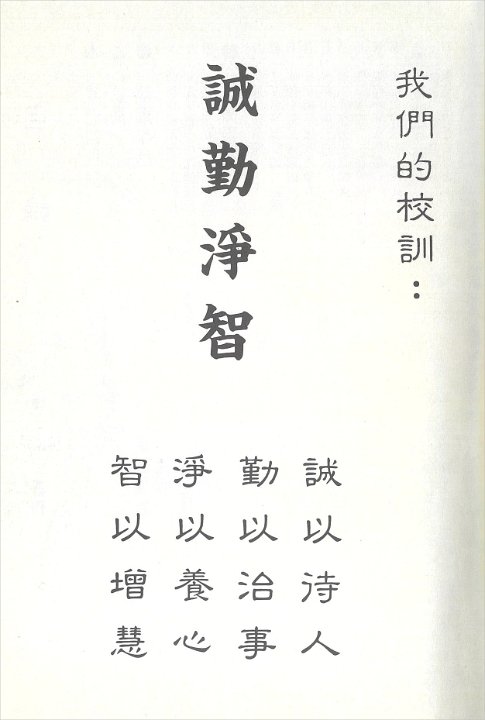 我們的校訓：
誠勤淨智
誠以待人
勤以治事
淨以養心
智以增慧